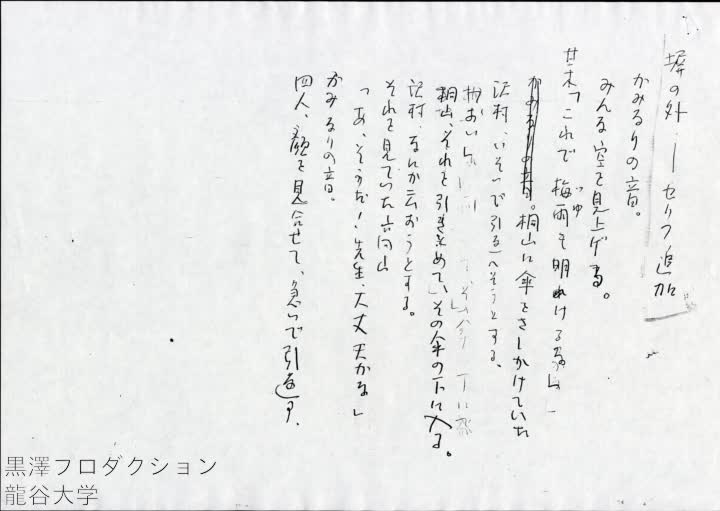 塀の外 ― セリフ追加
かみなりの音。
みんな空を見上げる。
甘木「これで梅雨も明けるな」
つゆ
かみなりの音。桐山に傘をさしかけていた
沢村、いそいで引っかえそうとする。
桐山、それを引き止めて、その傘の下に入る。
沢村、なんか云おうとする。
それを見ていた高山
「あ、そうだ！先生、大丈夫かな」
かみなりの音。
四人、顔を見合せて、急いで引返す。
黒澤プロダクション
龍谷大学